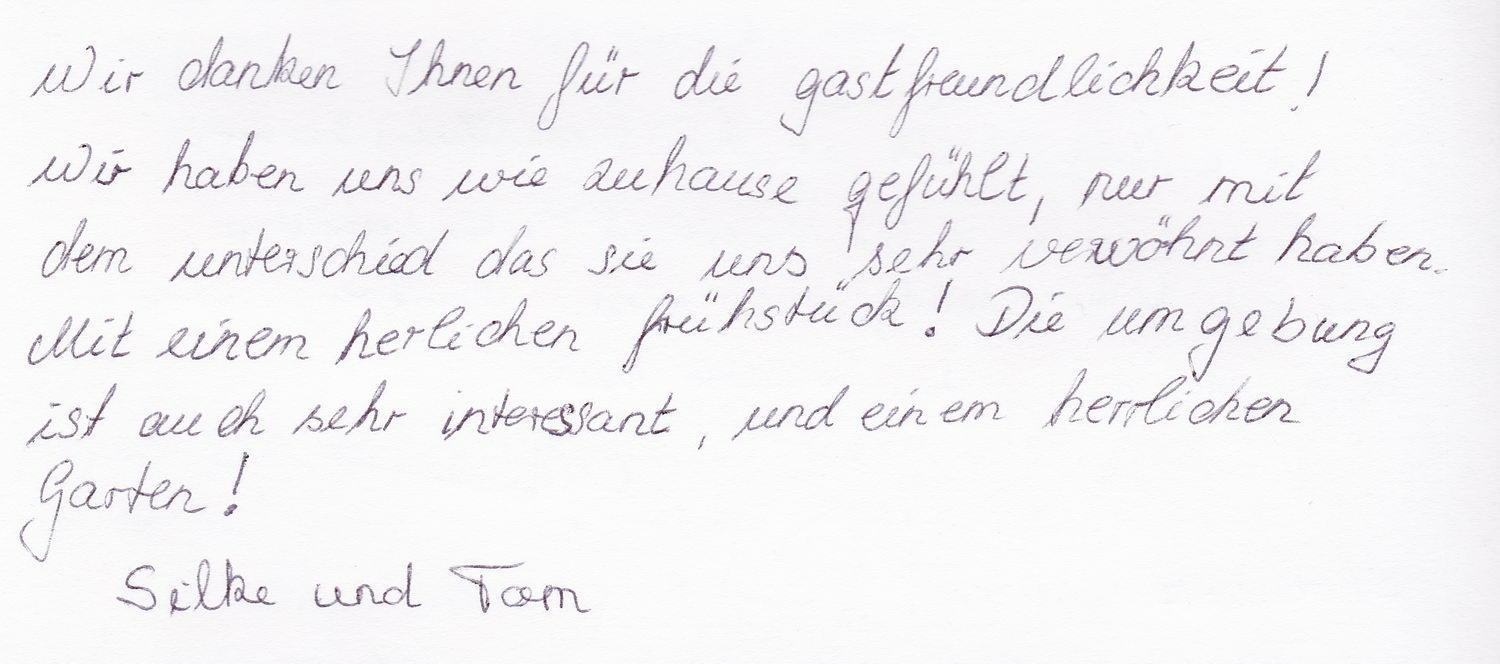 Wir danken Ihnen für die gastfreundlichkeit!
Wir haben uns wie zuhause gefühlt, nur mit
dem unterschied das sie uns sehr verwöhnt haben.
Mit einem herlichen frühstück! Die umgebung
ist auch sehr interessant, und einem herrlichen
Garten!
Silke und Tom